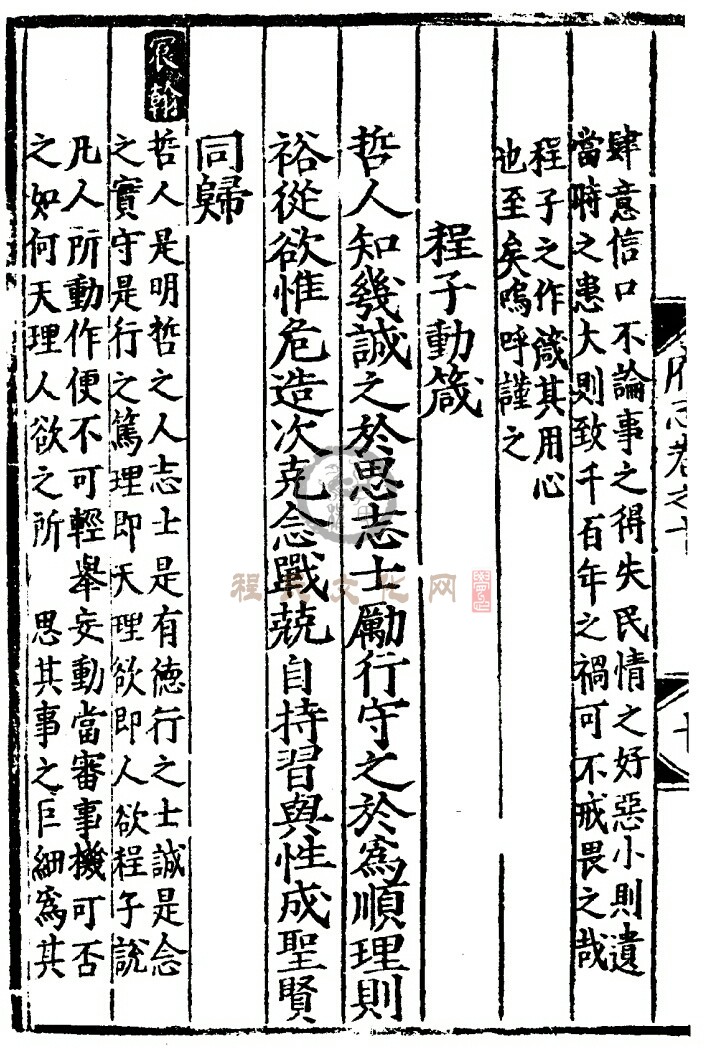 肆意信口不論事之得失民情之好惡小則遺
當時之患大則致千百年之禍可不戒畏之哉
程子之作箴其用心
也至矣嗚呼謹之
程子動箴
哲人知幾誠之於思志士勵行守之於為順理則
裕從欲惟危造次克念戰兢自持習與性成聖賢
同歸
宸翰
哲人是明哲之人志士是有德行之士誠是念
之實守是行之篤理即天理欲即人欲程子說
凡人所動作便不可輕舉妄動當審事機可否
之如何天理人欲之所 思其事之巨細為其
程氏文化网